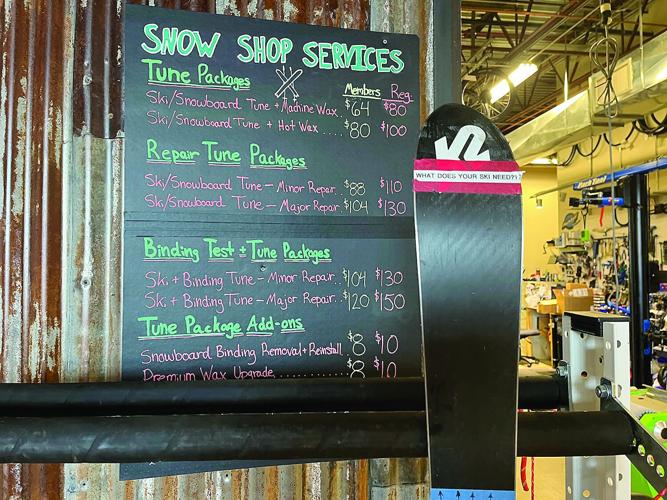 SNOW SHOP SERVICES
Tune Packages Members Reg.
Ski/Snowboard Tune + Machine Wax. $64 $80
Ski/Snowboard Tune + Hot Wax .... $80 $100
Repair Tune Packages
Ski/Snowboard Tune - Minor Repair. $88 $110
Ski/Snowboard Tune - Major Repair. $104 $130
Binding Test + Tune Packages
Ski + Binding Tune - Minor Repair.. $104 $130
Ski + Binding Tune - Major Repair... $120 $150
Tune Package Add-ons
Snowboard Binding Removal + Reinstall. $8 $10
Premium Wax Upgrade ............ $8 $10
K2
WHAT DOES YOUR SKI NEED?!?